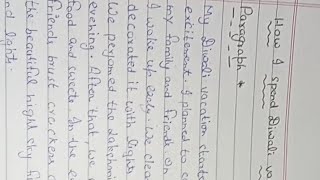 How I spend Diwali va
Paragraph *
My Diwali vacation starte
excitement. I planned to c
my family and friends on
I woke up early. We clea
decorated it with lights
We perfomed the Lakshmi
evening. After that, we
food and sweets. In the e
friends brust creckers a
the beautiful night sky fi
nd light.